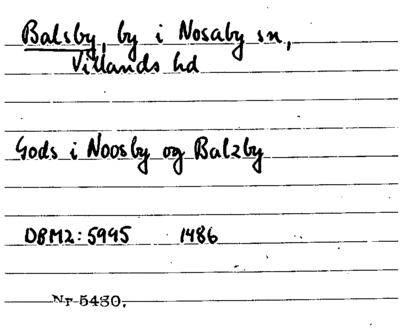 Balsby, by i Nosaby sn,
Villands hd
Gods i Noosby og Balzby
DBM2: 5995 1486
Nr 5480.